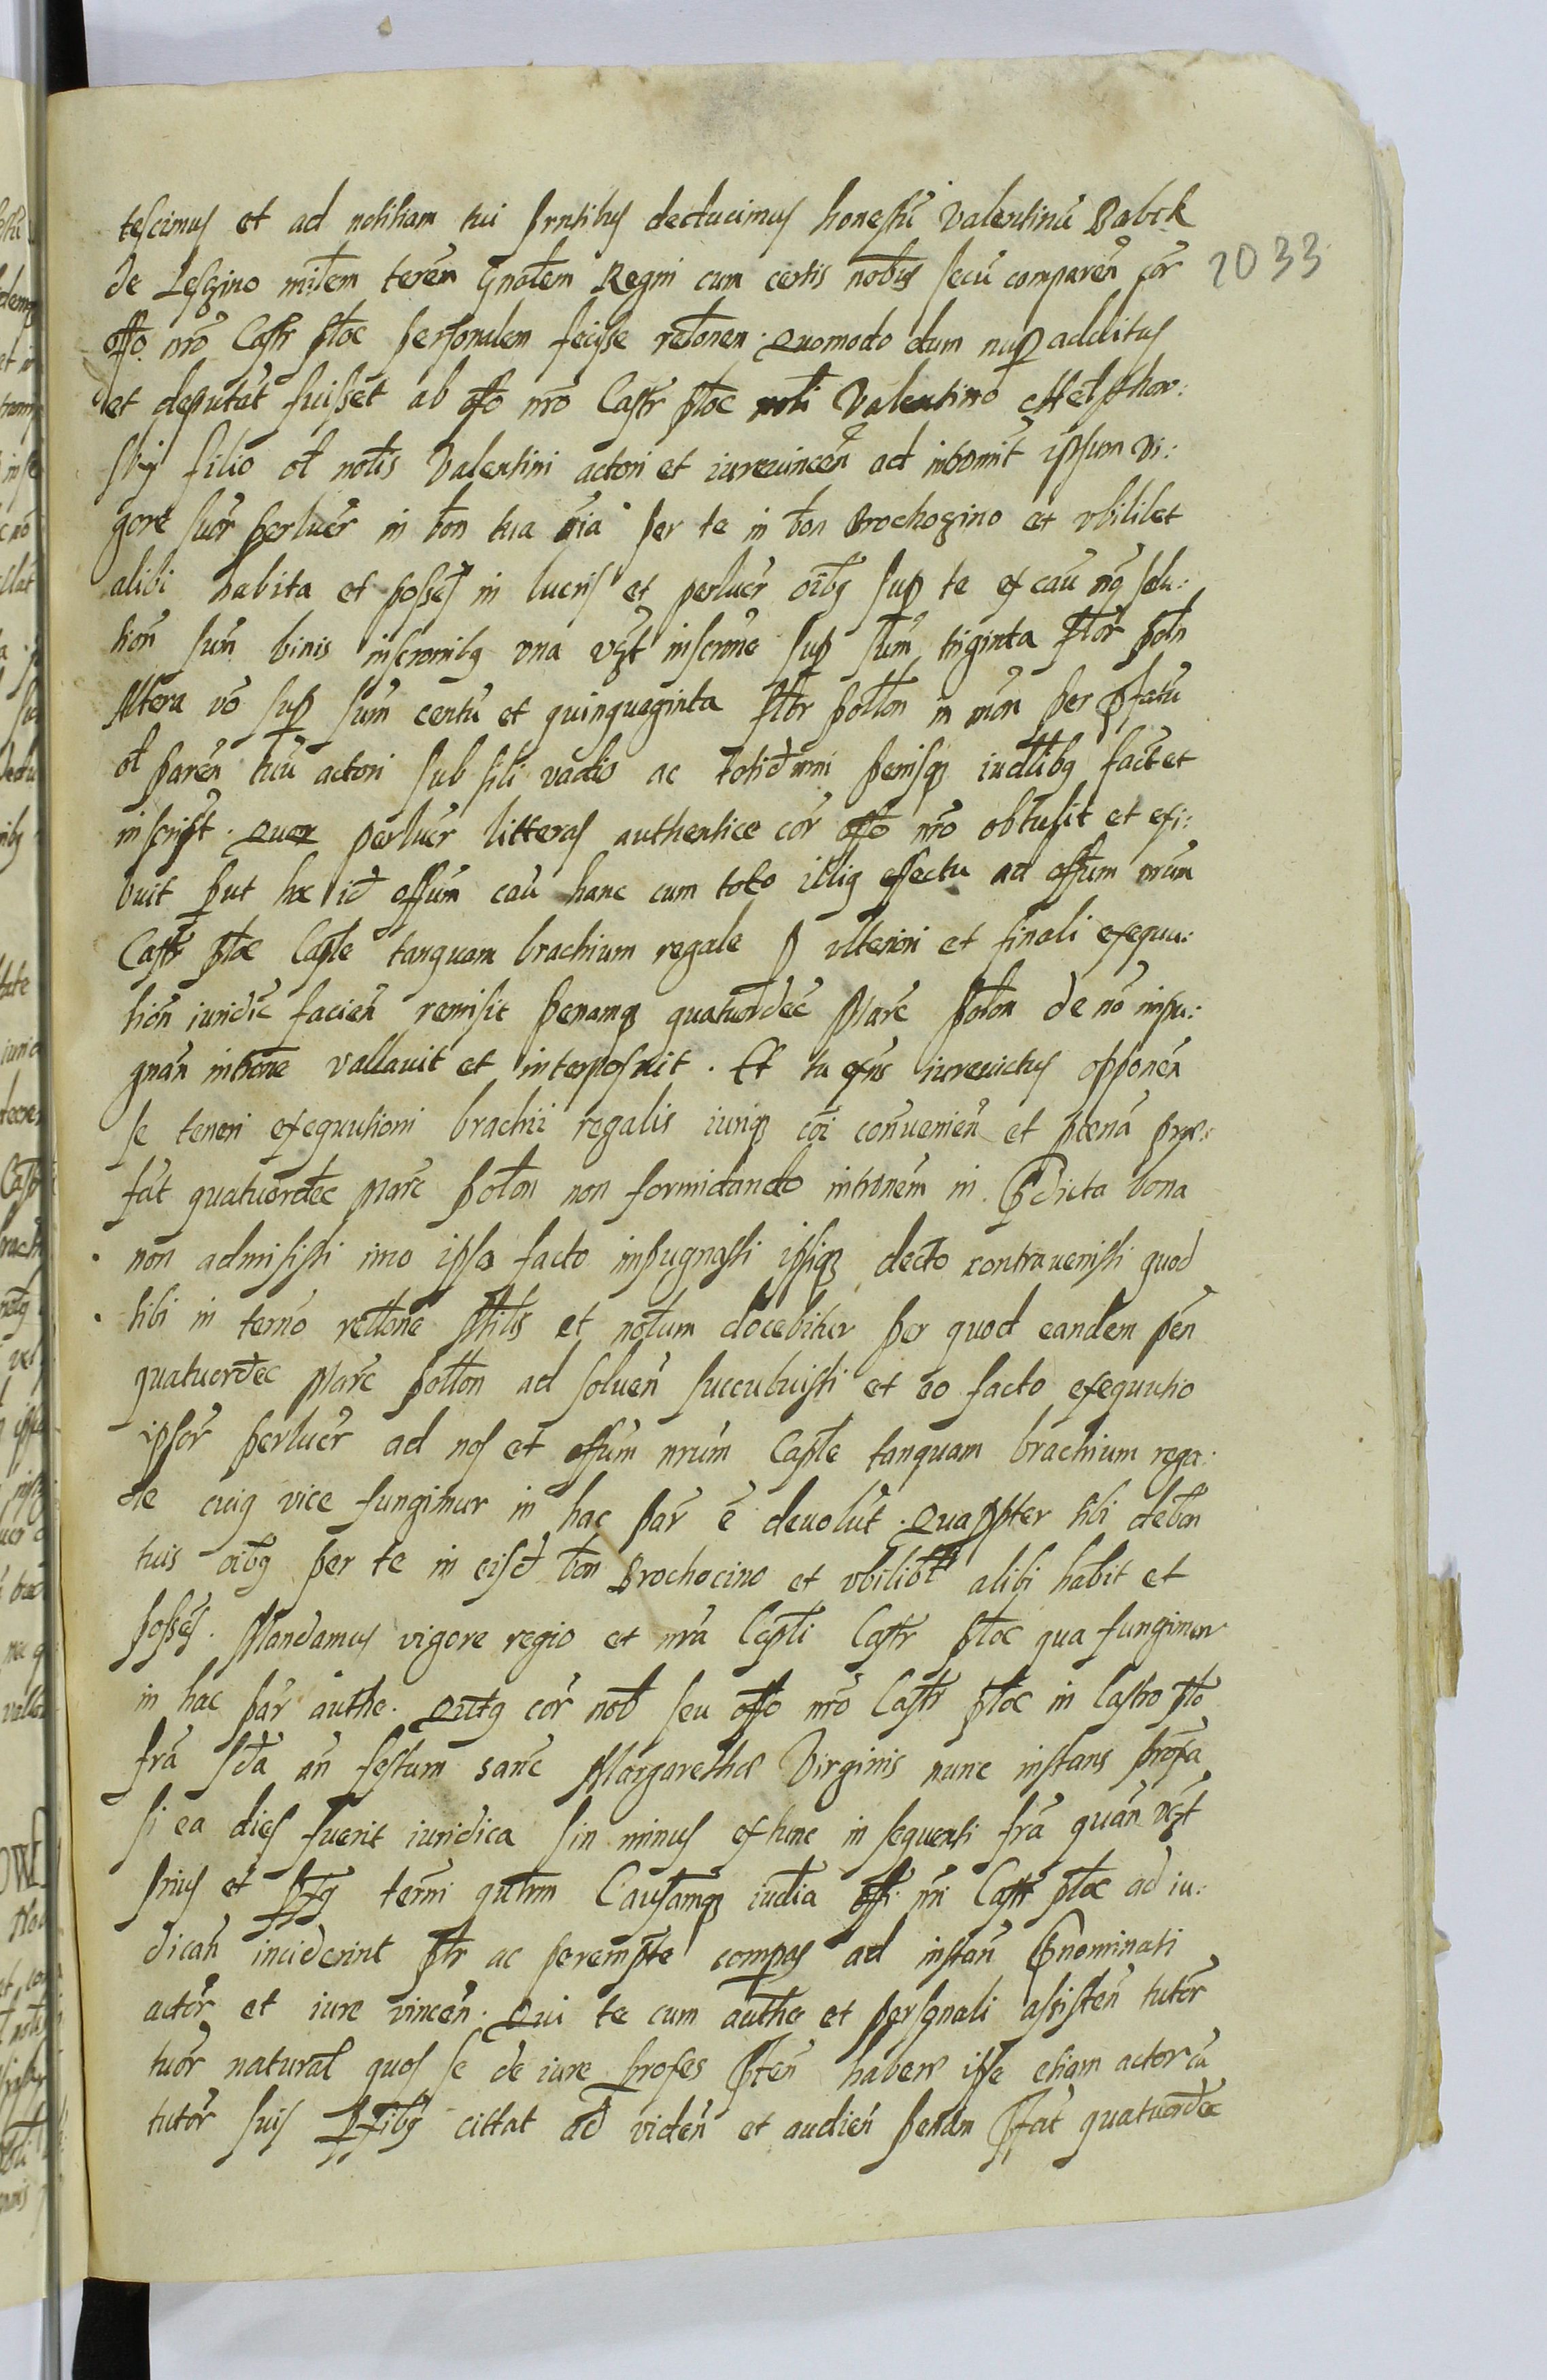 tescimus et ad notitiam tui prntibus deducimus honestū Valentinū Babek
2033
de Leszino miltem teren Gnalem Regni cum certis nobus secū comparen cor
offo nro Castr ploc personalem fecisse relonem. Quomodo dum nup additus
et deputat fuisset ab offo nro Castr ploc nobli Valentino
skij filio ol nolis Valentini actori et iurevincen ad intromit ipsum vi:
gore suor perlucr in bon tua oia per te in bon Brochozino et vbililet
alibi habita et posses in lucris et perlucr oibs sup te ex cau nō solu:
tion sum binis inscronibq vna vzt inscrone sup sum triginta flor poln
Altera vo sup sum centū et quinquaginta flor pollon in mon per pfatū
ol paren tuū actori sub sili vadio ac totid mni penisq iudlibq fact et
inscript. Quor perlucr litteras authentice cor offo nro obtulit et exi:
buit put hc id offum cau hanc cum toto illiq effectu ad offum nrum
Castr ploc Caple tanquam brachium regale p vlteriori et finali exequu:
tion iuridic facien remisit penamq quatuordec Marc polon de no impu:
gnan introne vallavit et interposuit. Et tu exns iurevictus opponen
se teneri exequutioni brachii regalis iuriq coi convenien et pœna præ:
fat quatuordec Marc polon non formidando intronem in pdicta bona
non admisisti imo ipso facto impugnasti ipsiq decto contravenisti quod
tibi in termo rellone Mtlis et nolum docebitur per quod eandem pen
quatuordec Marc pollon ad soluen succubuisti et eo facto exequutio
ipsor perlucr ad nos et offum nrum Caple tanquam brachium rega:
le cuiq vice fungimur in hac par e devolut. Quappter tibi de bon
tuis oibq per te in eisd bon Brochocino et vbilibt alibi habit et
posses. Mandamus vigore regio et nra Capli Castr ploc qua fungimur
in hac par authe. Qutq cor nob seu offo nro Castr ploc in Castro plo
fra sda an festum sanc Margarethæ Virginis nunc instans proxa
si ea dies fuerit iuridica sin minus extunc in sequenti fra quan vzt
prius et termi qulrm Causamq iudia offi nri Castr ploc ad iu:
dican inciderint ptr ac perempte compas ad instan Pnominati
actor et iure vincen. Qui te cum authe et personali assisten tutor
tuor natural quos se de iure profes pten habere ipse etiam actor cū
tutor suis cittat ad viden et audien penam pfat quatuordec